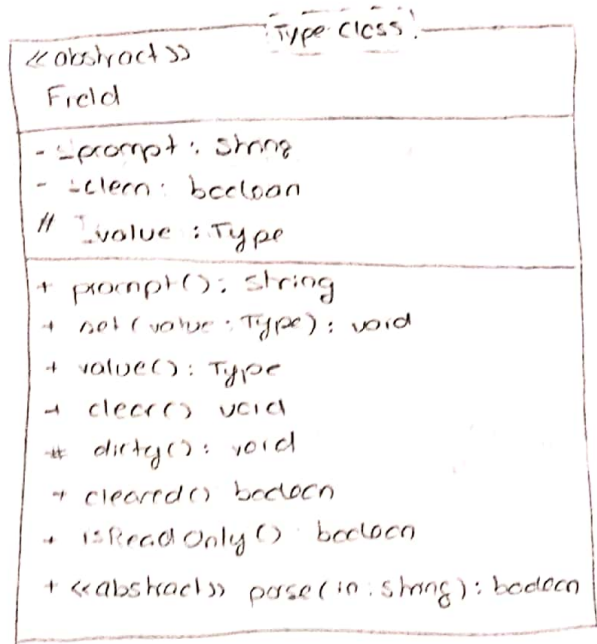 Type: Class
<<abstract>>
Field
- _prompt: String
- _clean: boolean
# _value: Type
+ prompt(): String
+ set(value: Type): void
+ value(): Type
+ clear() void
# dirty(): void
+ cleared() boolean
+ isReadOnly() boolean
+ <<abstract>> parse(in: String): boolean